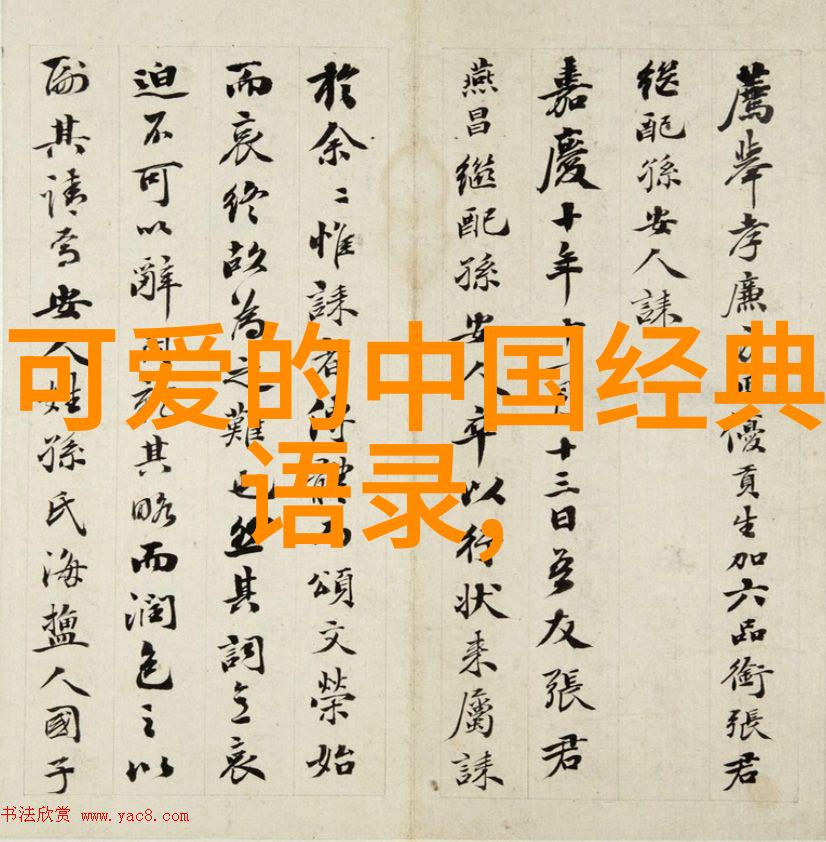 薦舉孝廉優貢生加六品銜張君
继配孫安人誄
嘉慶十年十月十三日吾友張君
燕昌繼配孫安人卒以行状来屬誄
於余〻惟誄者體而頌文榮始
而哀终故為之難也然其詞哀
迫不可以辭其略而潤色之以
副其请焉安人姓孫氏海鹽人國子
可爱的中国经典
语录,
书法欣赏 www.yac8.com